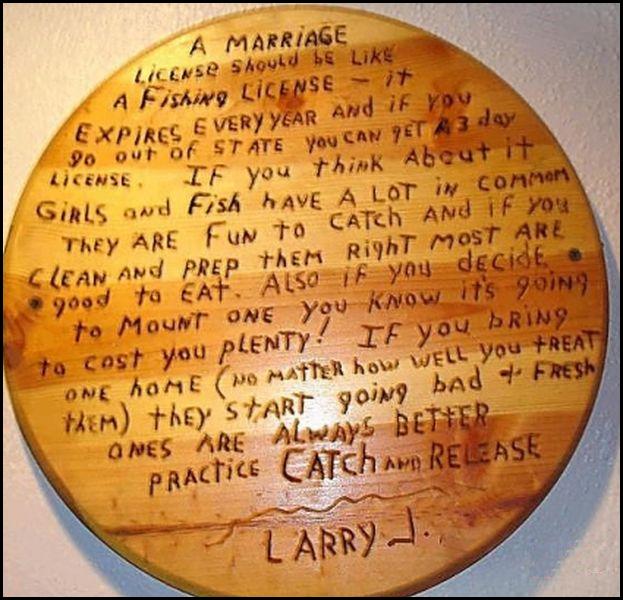 A MARRIAGE
LICENSE SHOULD BE LIKE
A FISHING LICENSE - it
EXPIRES EVERY YEAR AND if YOU
go out OF STATE YOU CAN gET A 3 day
LICENSE. IF you think About it
GiRLS and FisH hAVE A LOT iN COMMOM
They ARE FuN to CAtCH AND if YOU
CLEAN AND PREP thEM Right MOST ARE
good to EAT. ALSO if you dECIdE
to MOUNT ONE you KNOW it's gOiNg
to COSt yOU PLENTY! IF YOU bRiNg
ONE hOME (NO MATTER how WELL yOU tREAT
thEM) thEy START going bad + FRESh
ONES ARE ALWAYS BETTER
PRACTiCE CATCH AND RELEASE
LARRY J.